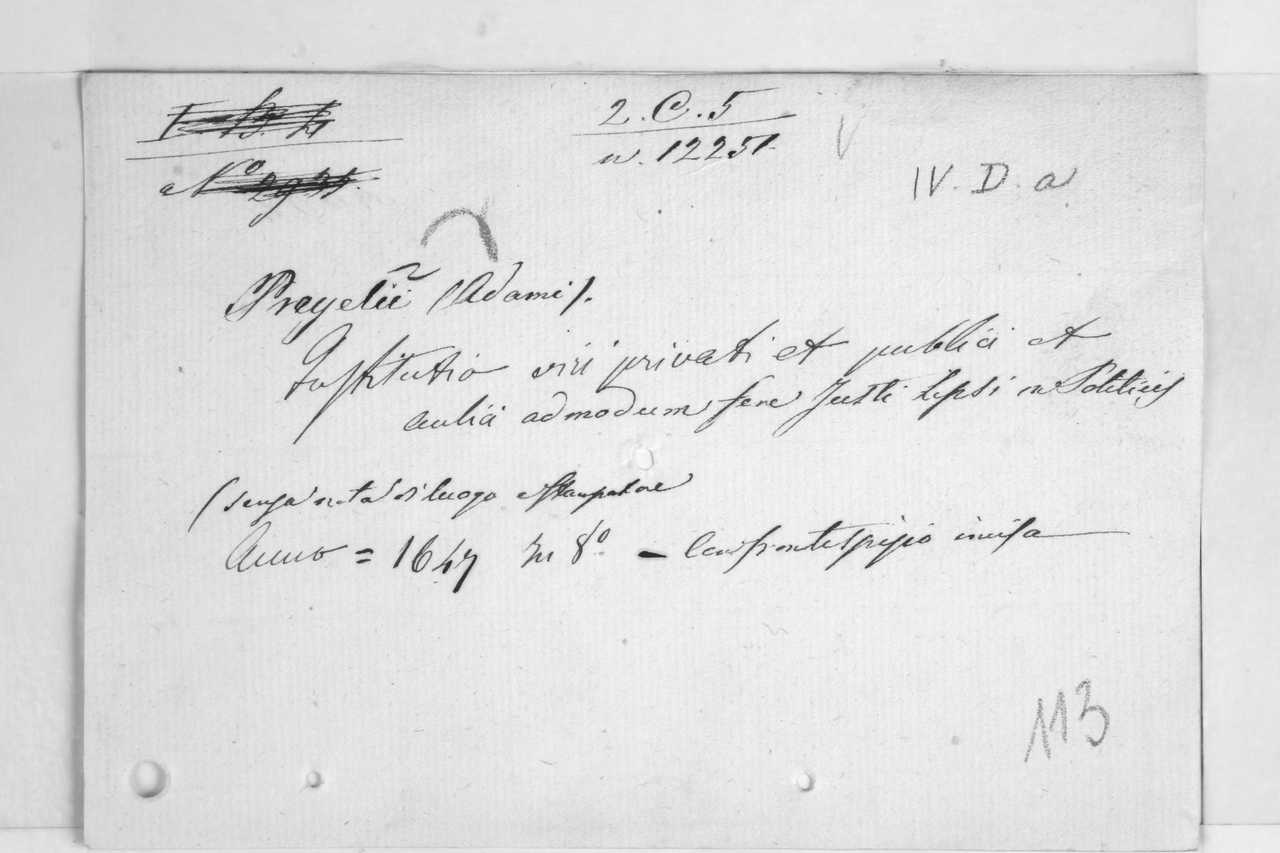 2. C. 5
n. 12251.
IV. D. a
Preyelii (Adami).
Institutio viri privati et publici et
aulici admodum fere Justi Lipsi in Politicis
(senza nota di luogo e Stampatore
Anno = 1647 In 8º. - Con frontespizio incisa
113